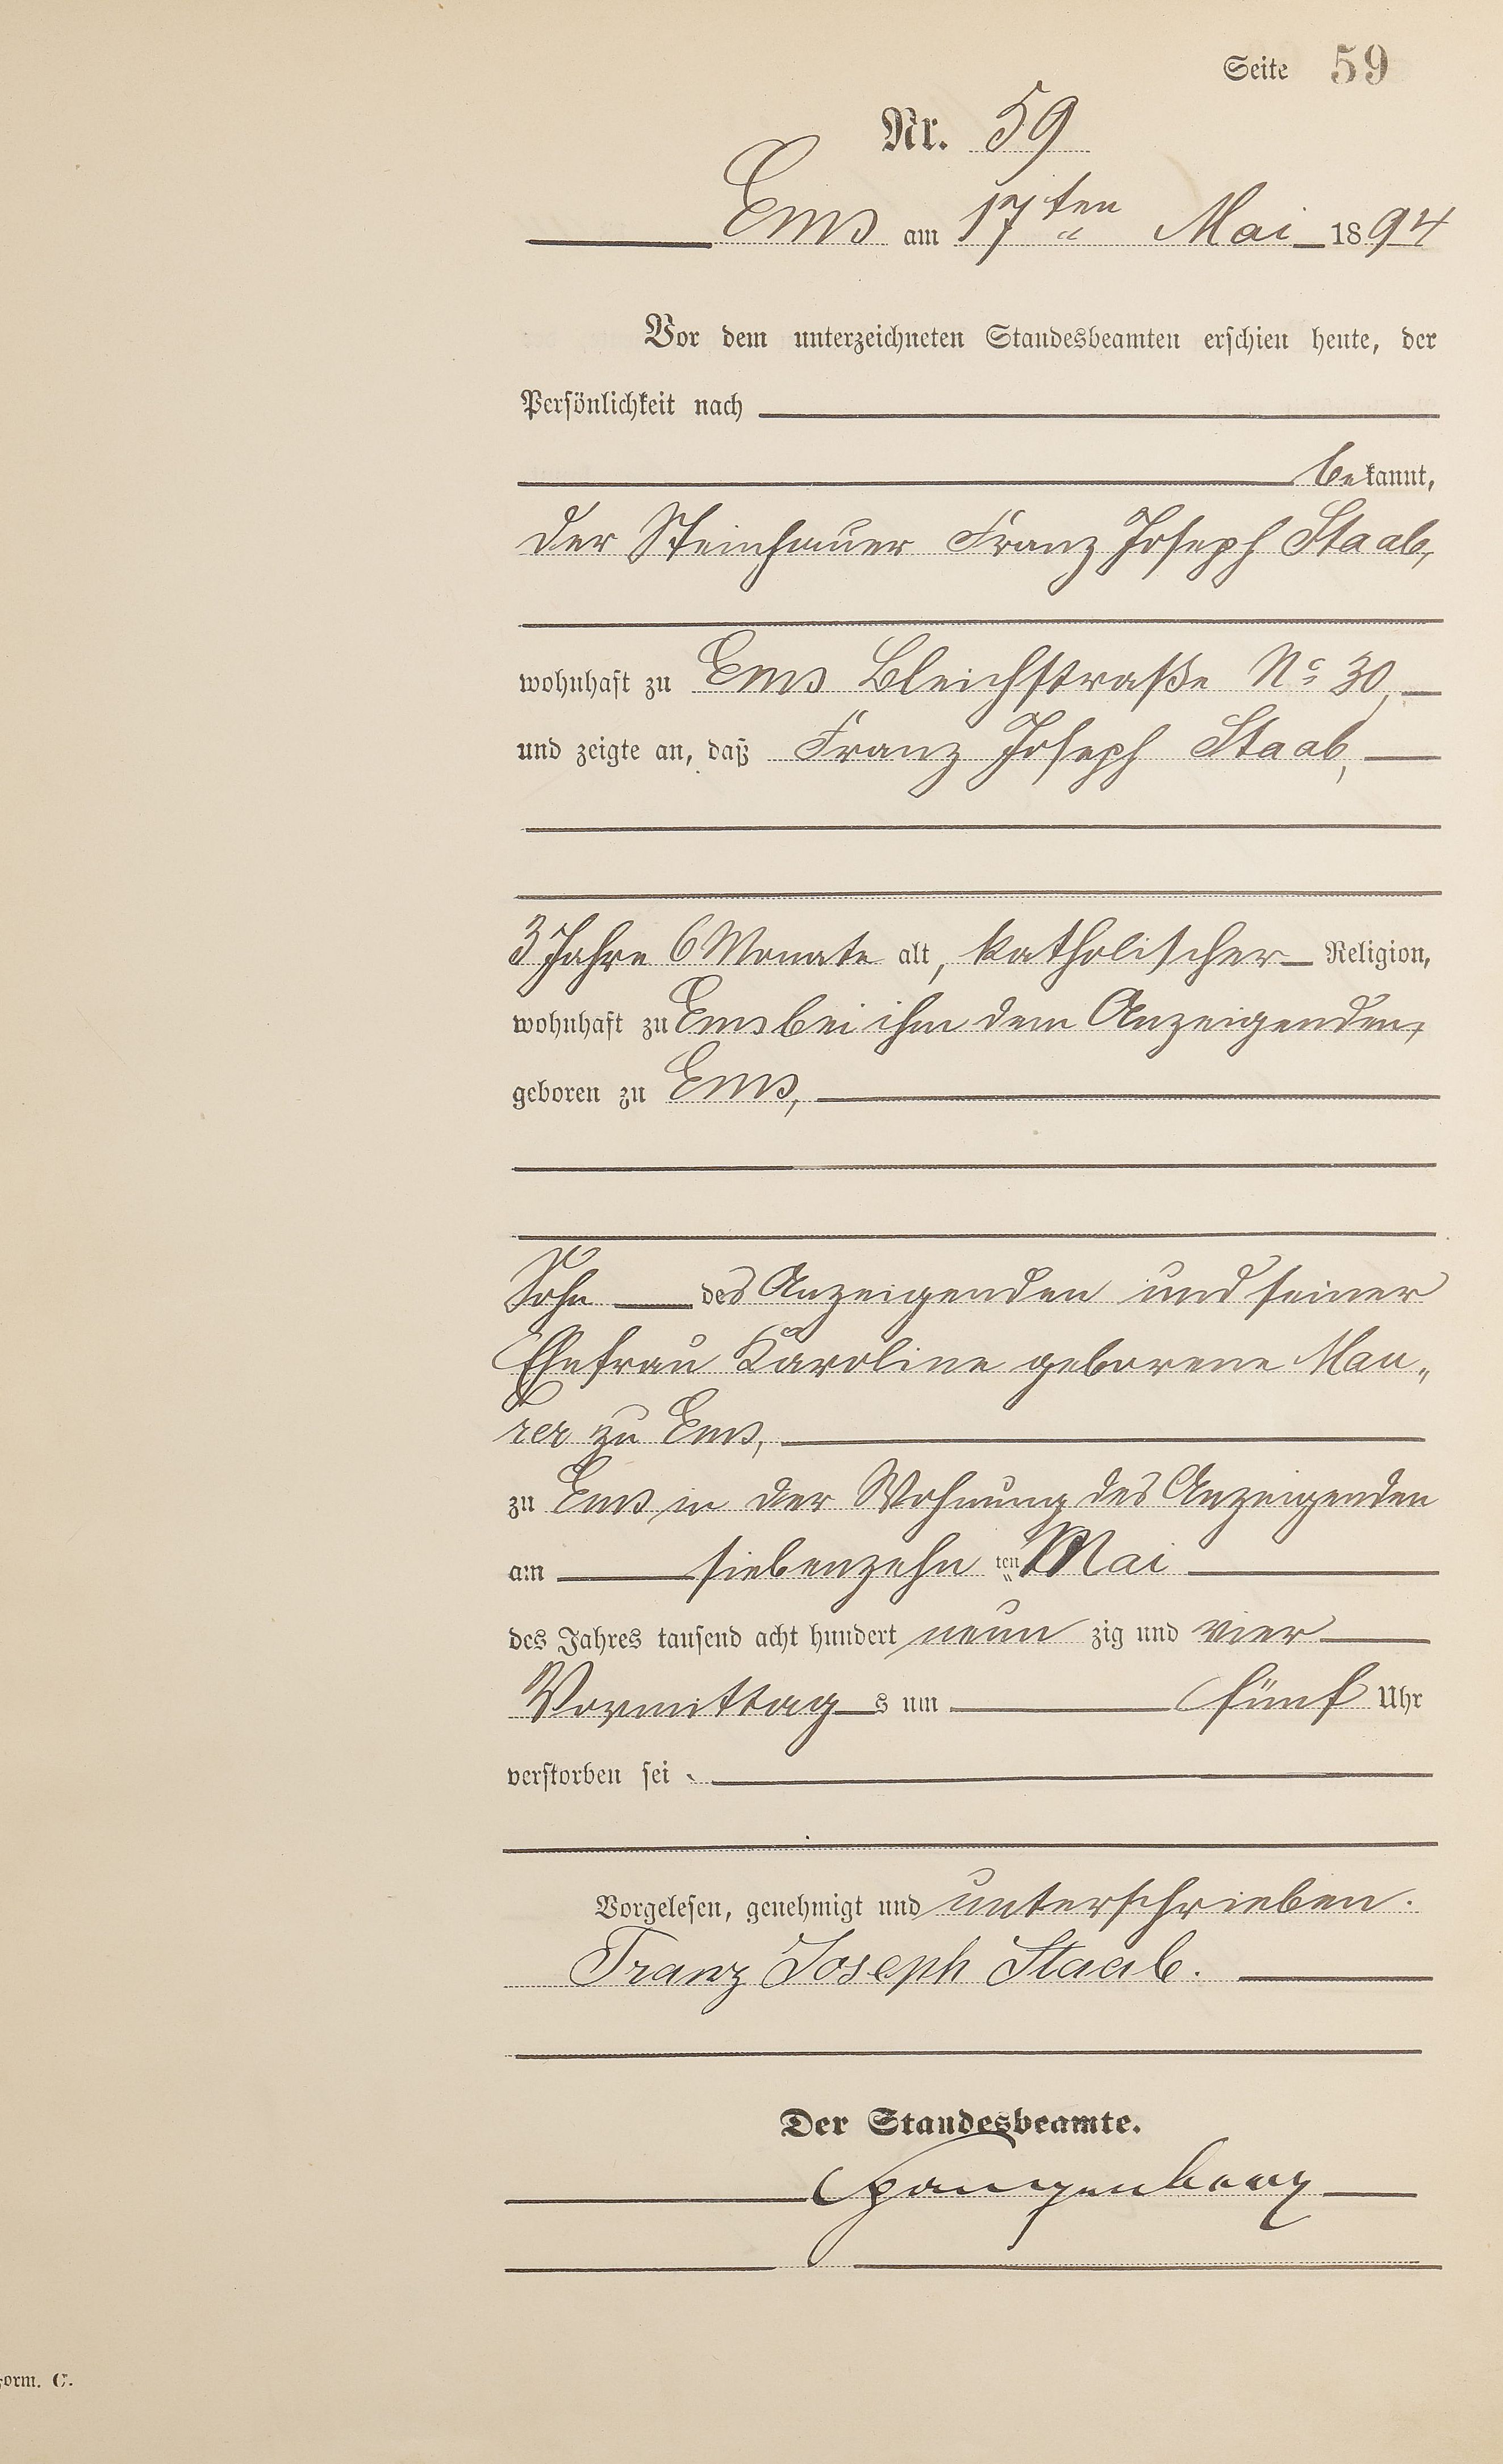 Seite 59
Nr. 59
Ems am 17ten Mai 1894
Vor dem unterzeichneten Standesbeamten erschien heute, der
Persönlichkeit nach
bekannt,
der Steinhauer Franz Joseph Staab,
wohnhaft zu Ems Bleichstraße No 30,
und zeigte an, daß Franz Joseph Staab,
3 Jahre 6 Monate alt, katholischer Religion,
wohnhaft zu Ems bei ihm dem Anzeigenden,
geboren zu Ems,
Sohn des Anzeigenden und seiner
Ehefrau Karoline geborene Mau„
rer zu Ems,
zu Ems in der Wohnung des Anzeigenden
am siebenzehn ten Mai
des Jahres tausend acht hundert neun zig und vier
Vormittags um fünf Uhr
verstorben sei.
Vorgelesen, genehmigt und unterschrieben.
Franz Joseph Staab.
Der Standesbeamte.
orm. C.